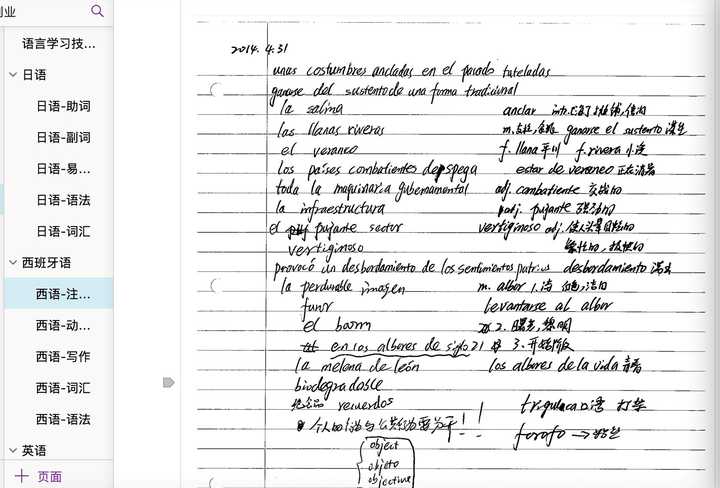 业
语言学习技...
日语
日语-助词
日语-副词
日语-易...
日语-语法
日语-词汇
西班牙语
西语-注...
西语-动...
西语-写作
西语-词汇
西语-语法
英语
页面
2014.4.31
unas costumbres ancladas en el pasado tuteladas
ganarse del sustento de una forma tradicional
la salina
anclar intr.
las llanas riveras
m. ganarse el sustento 谋生
el veraneo
f. llana 平川 f. rivera 小溪
los países combatientes despega
estar de veraneo 正在消暑
toda la maquinaria gubernamental
adj. combatiente 交战的
la infraestructura
adj. pujante 强劲的
el pujante sector
vertiginoso adj. 使人头晕目眩的
vertiginoso
provocó un desbordamiento de los sentimientos patrios
desbordamiento 溢出
la perdurable imagen
m. albor 1.
furor
levantarse al albor
el boom
2. 曙光, 黎明
en los albores de siglo 21
3. 开始阶段
la melena de león
los albores de la vida 青春
biodegradable
纪念品 recuerdos
口语
个人的
forofo →
object
objeto
objective